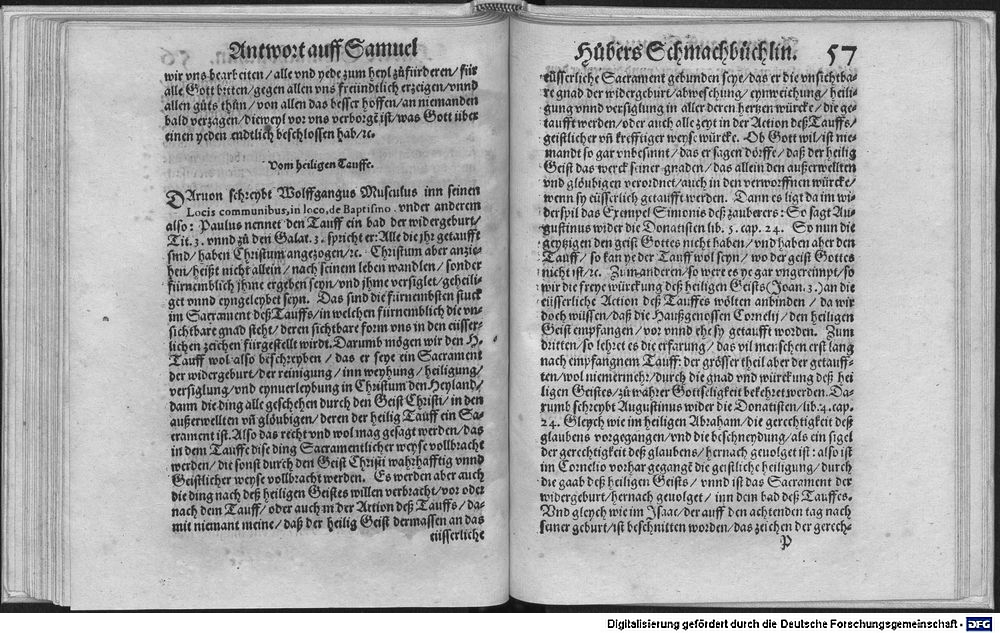 Antwort auff Samuel
wir vns bearbeiten / alle vnd yede zum heyl zůfürderen / für
alle Gott bitten / gegen allen vns freündtlich erzeigen / vnnd
allen gůts thůn / von allen das besser hoffen / an niemanden
bald verzagen / dieweyl vor vns verborgẽ ist / was Gott über
einen yeden endtlich beschlossen hab / ꝛc.
Vom heiligen Tauffe.
DAruon schreybt Wolffgangus Musculus inn seinen
Locis communibus, in loco, de Baptismo. vnder anderem
also: Paulus nennet den Tauff ein bad der widergeburt /
Tit. 3. vnnd zů den Galat. 3. spricht er: Alle die jhr getaufft
sind / haben Christum angezogen / ꝛc. Christum aber anzie-
hen / heißt nicht allein / nach seinem leben wandlen / sonder
fürnemblich jhme ergeben seyn / vnd jhme versiglet / geheili-
get vnnd eyngeleybet seyn. Das sind die fürnembsten stuck
im Sacrament deß Tauffs / in welchen fürnemblich die vn-
sichtbare gnad steht / deren sichtbare form vns in den eüsser-
lichen zeichen fürgestellt wirdt. Darumb mögen wir den H.
Tauff wol also beschreyben / das er seye ein Sacrament
der widergeburt / der reinigung / inn weyhung / heiligung /
versiglung / vnd eynuerleybung in Christum den Heyland /
dann die ding alle geschehen durch den Geist Christi / in den
außerwellten vñ glöubigen / deren der heilig Tauff ein Sa-
crament ist. Also das recht vnd wol mag gesagt werden / das
in dem Tauffe dise ding Sacramentlicher weyse vollbracht
werden / die sonst durch den Geist Christi wahrhafftig vnnd
Geistlicher weyse vollbracht werden. Es werden aber auch
die ding nach deß heiligen Geistes willen verbracht / vor oder
nach dem Tauff / oder auch in der Action deß Tauffs / da-
mit niemant meine / daß der heilig Geist dermassen an das
eüsserliche
Hůbers Schmachbüchlin. 57
eüsserliche Sacrament gebunden seye / das er die vnsichtba-
re gnad der widergeburt / abweschung / eynweichung / heili-
gung vnnd versiglung in aller deren hertzen würcke / die ge-
taufft werden / oder auch alle zeyt in der Action deß Tauffs /
geistlicher vñ krefftiger weyse würcke. Ob Gott wil / ist nie-
mandt so gar vnbesinnt / das er sagen dörffe / daß der heilig
Geist das werck seiner gnaden / das allein den außerwellten
vnd glöubigen verordnet / auch in den verworffnen würcke /
wenn sy eüsserlich getaufft werden. Dann es ligt da im wi-
derspil das Exempel Simonis deß zauberers: So sagt Au-
gustinus wider die Donatisten lib. 5. cap. 24. So nun die
geytzigen den geist Gottes nicht haben / vnd haben aber den
Tauff / so kan ye der Tauff wol seyn / wo der geist Gottes
nicht ist / ꝛc. Zum anderen / so were es ye gar vngereimpt / so
wir die freye würckung deß heiligen Geists (Joan. 3.) an die
eüsserliche Action deß Tauffes wölten anbinden / da wir
doch wüssen / daß die Haußgenossen Cornelij / den heiligen
Geist empfangen / vor vnnd ehe sy getaufft worden. Zum
dritten / so lehret es die erfarung / das vil menschen erst lang
nach empfangnem Tauff: der grösser theil aber der getauff-
ten / wol niemermehr / durch die gnad vnd würckung deß hei
ligen Geistes / zů wahrer Gottseligkeit bekehret werden. Da-
rumb schreybt Augustinus wider die Donatisten / lib. 4. cap.
24. Gleych wie im heiligen Abraham / die gerechtigkeit deß
glaubens vorgegangen / vnd die beschneydung / als ein sigel
der gerechtigkeit deß glaubens / hernach geuolget ist: also ist
im Cornelio vorhar gegangẽ die geistliche heiligung / durch
die gaab deß heiligen Geists / vnnd ist das Sacrament der
widergeburt / hernach geuolget / inn dem bad deß Tauffes.
Vnd gleych wie im Isaac / der auff den achtenden tag nach
seiner geburt / ist beschnitten worden / das zeichen der gerech-
P
Digitalisierung gefördert durch die Deutsche Forschungsgemeinschaft - DFG